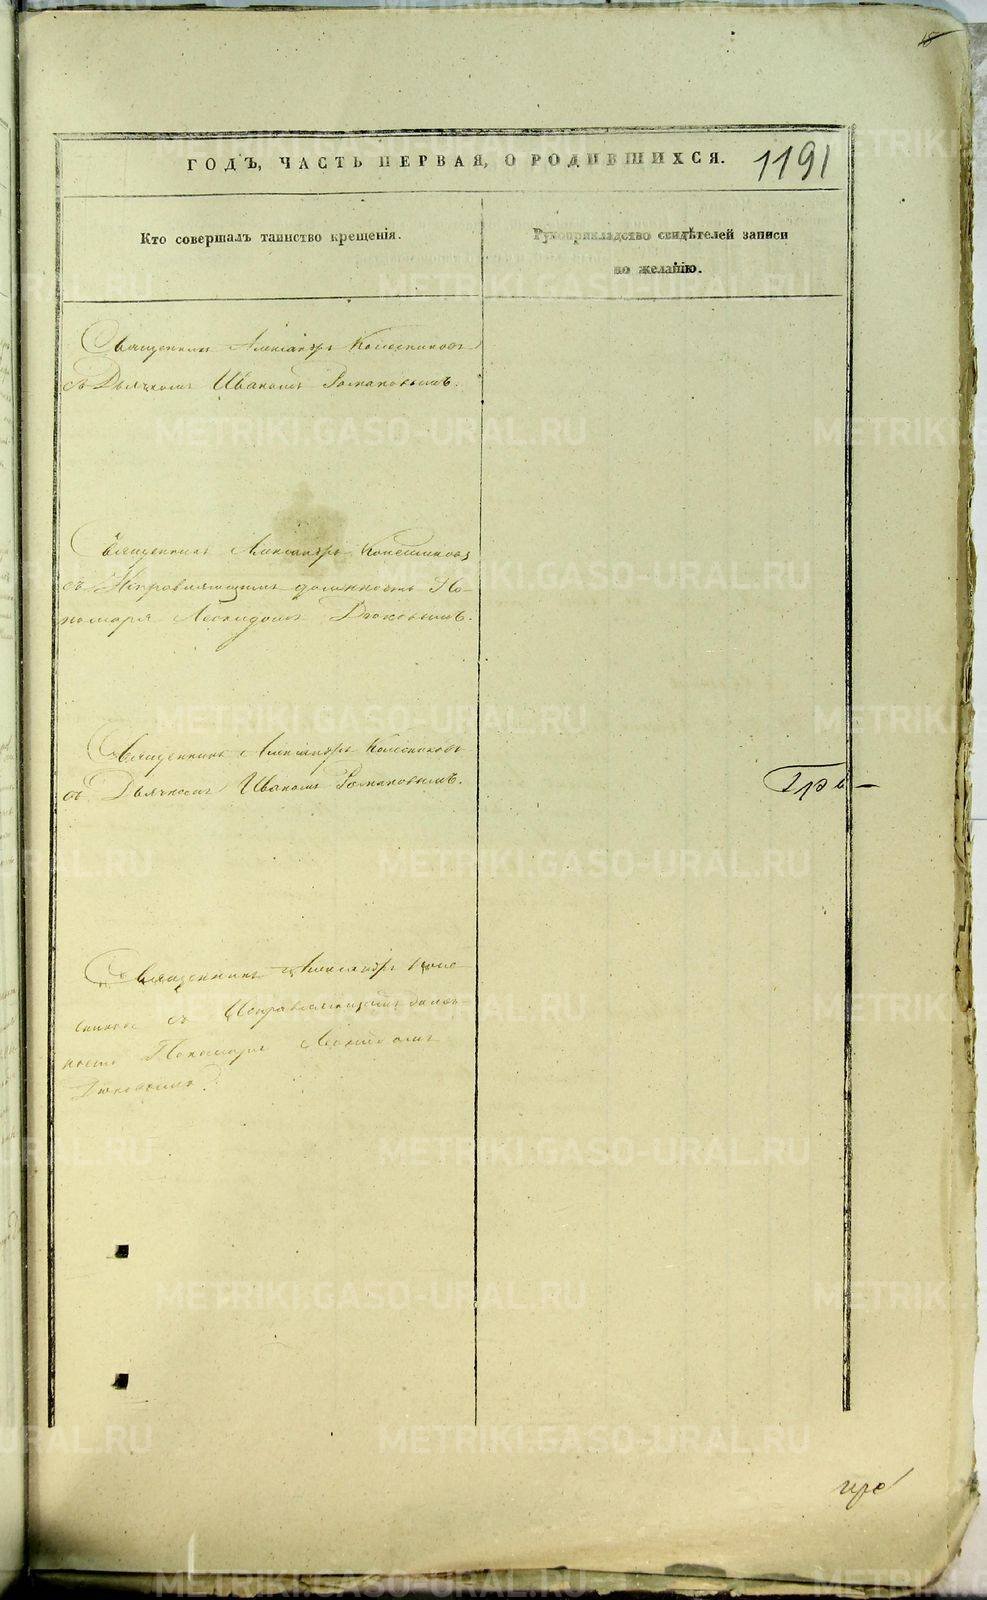 18
ГОДЪ, ЧАСТЬ ПЕРВАЯ, О РОДИВШИХСЯ. 1191
Кто совершалъ таинство крещенія.
Рукоприкладство свидѣтелей записи
по желанію.
Священникъ Александръ Колесниковъ
съ Дьячкомъ Иваномъ Романовымъ.
Священникъ Александръ Колесниковъ
съ Исправляющимъ должность По-
номаря Леонидомъ Дюковымъ.
Священникъ Александръ Колесниковъ
съ Дьячкомъ Иваномъ Романовымъ.
Священникъ Александръ Коле
сниковъ съ Исправляющимъ долж-
ность Пономаря Леонидомъ
Дюковымъ.
METRIKI.GASO-URAL.RU